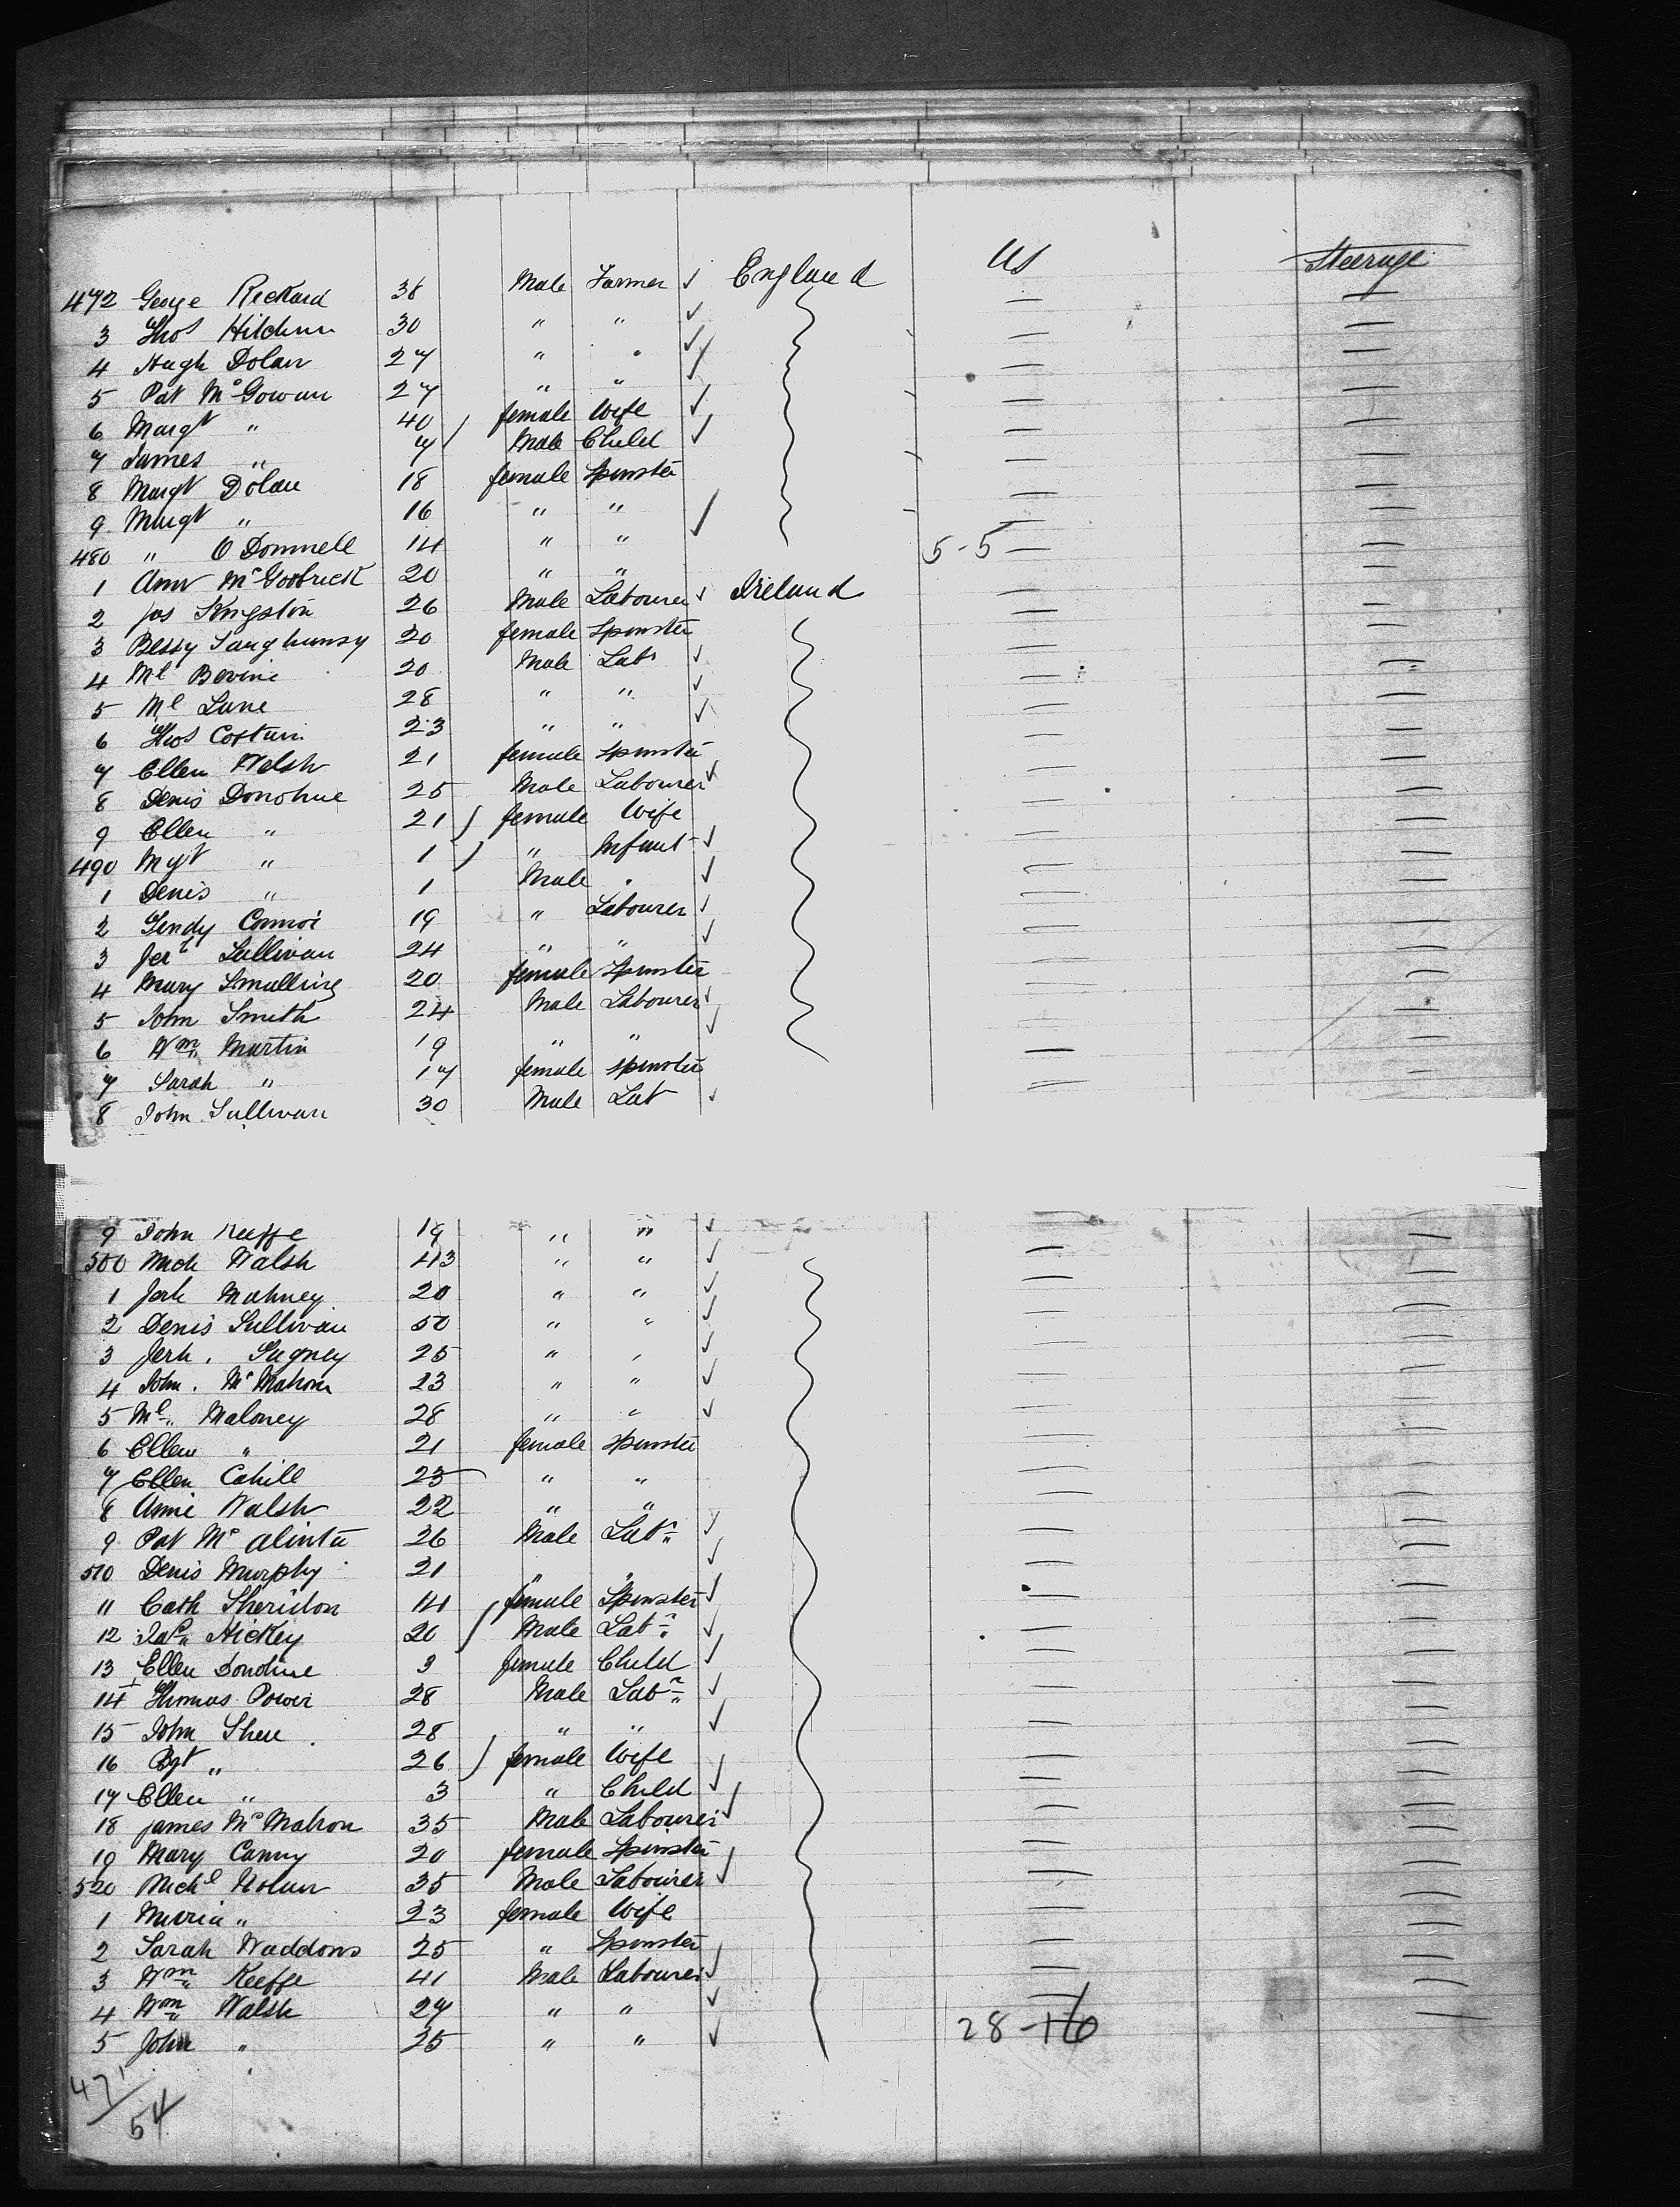 US Steerage
472 George Rickard 38 Male Farmer ✓ England — —
3 Thos Hildum 30 " " ✓ — —
4 Hugh Dolan 27 " " ✓ — —
5 Pat McGowan 27 " " ✓ — —
6 Margt " 40 female Wife ✓ — —
7 James " 7 Male Child ✓ — —
8 Margt Dolan 18 female Spinster — —
9 Margt " 16 " " — —
480 " O Donnell 14 " " ✓ — —
5-5
1 Ann 20 " " — —
2 Jos Kingston 26 Male Labourer ✓ Ireland — —
3 Bessy 20 female Spinster — —
4 Ml 20 Male Labr ✓ — —
5 Ml Lane 28 " " ✓ — —
6 Thos 23 " " ✓ — —
7 Ellen Welsh 21 female Spinster — —
8 Denis Donohue 25 Male Labourer ✓ — —
9 Ellen " 21 female Wife — —
490 Mgt " 1 " Infant ✓ — —
1 Denis " 1 Male " ✓ — —
2 Connor 19 " Labourer ✓ — —
3 Jerh Sullivan 24 " " ✓ — —
4 Mary 20 female Spinster — —
5 John Smith 24 Male Labourer ✓ — —
6 Wm Martin 19 " " ✓ — —
7 Sarah " 17 female spinster — —
8 John Sullivan 30 Male Lab ✓ — —
9 John Keeffe 19 " " ✓ — —
500 Mich Walsh 43 " " ✓ — —
1 Jerh Mahney 20 " " ✓ — —
2 Denis Sullivan 50 " " ✓ — —
3 Jerh. 25 " " ✓ — —
4 John. McMahon 23 " " ✓ — —
5 Ml Maloney 28 " " ✓ — —
6 Ellen " 21 female spinster — —
7 Ellen Cahill 23 " " — —
8 Annie Walsh 22 " " — —
9 Pat Mc 26 Male Labr ✓ — —
510 Denis Murphy 21 " " ✓ — —
11 Cath Sheridan 14 female Spinster ✓ — —
12 Hickey 20 Male Labr ✓ — —
13 Ellen 3 female Child ✓ — —
14 Thomas Power 28 Male Labr ✓ — —
15 John Shea 28 " " ✓ — —
16 Bgt " 26 female Wife — —
17 Ellen " 3 " Child ✓ — —
18 James McMahon 35 Male Labourer ✓ — —
19 Mary Canny 20 female Spinster — —
520 Michl Nolan 35 Male Labourer ✓ — —
1 Maria " 23 female Wife — —
2 Sarah Waddons 25 " Spinster — —
3 Wm Keeffe 41 Male Labourer ✓ — —
4 Wm Walsh 27 " " ✓ — —
5 John " 25 " " ✓ — —
28-16
471
54